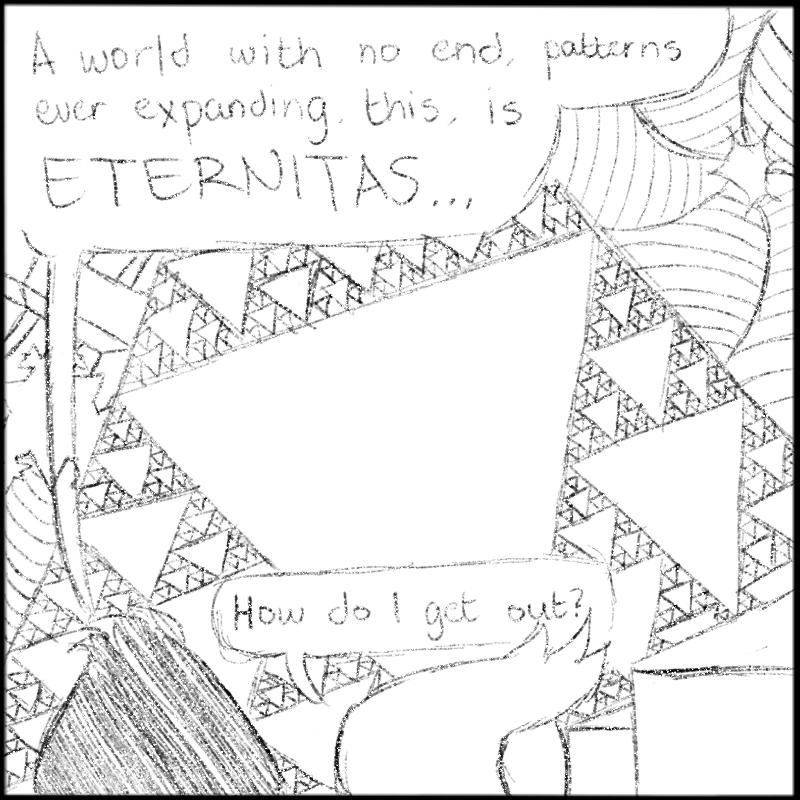 A world with no end, patterns
ever expanding, this, is
ETERNITAS...
How do I get out?